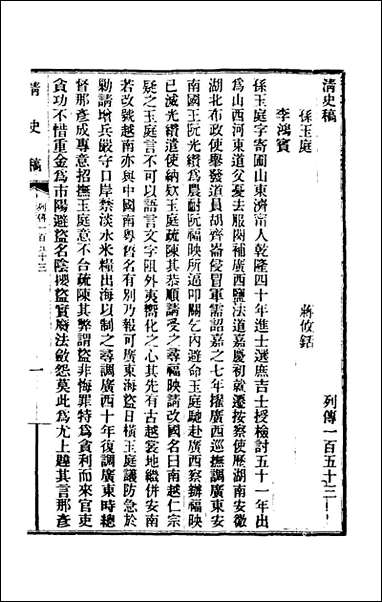 清史稿 列傳一百五十三
孫玉庭 蔣攸銛
李鴻賓
孫玉庭字寄圃山東濟寧人乾隆四十年進士選庶吉士授檢討五十一年出
爲山西河東道父憂去服闋補廣西鹽法道嘉慶初就遷按察使歷湖南安徽
湖北布政使舉發道員胡齊崙侵冒軍需詔嘉之七年擢廣西巡撫調廣東安
南國王阮光纘爲農耐阮福映所逼叩關乞內避命玉庭馳赴廣西察辦福映
已滅光纘遣使納欵玉庭疏陳其恭順請受之尋福映請改國名曰南越仁宗
疑之玉庭言不可以語言文字阻外夷嚮化之心其先有古越裳地繼併安南
若改號越南亦與中國南粵舊名有別乃報可廣東海盜日橫玉庭議防急於
勦請增兵嚴守口岸禁淡水米糧出海以制之尋調廣西十年復調廣東時總
督那彥成專意招撫玉庭意不合疏陳其弊謂盜非悔罪特爲貪利而來官吏
貪功不惜重金爲市陽避盜名陰攖盜實廢法斂怨莫此爲尤上韙其言那彥
清史稿 列傳一百五十三 一